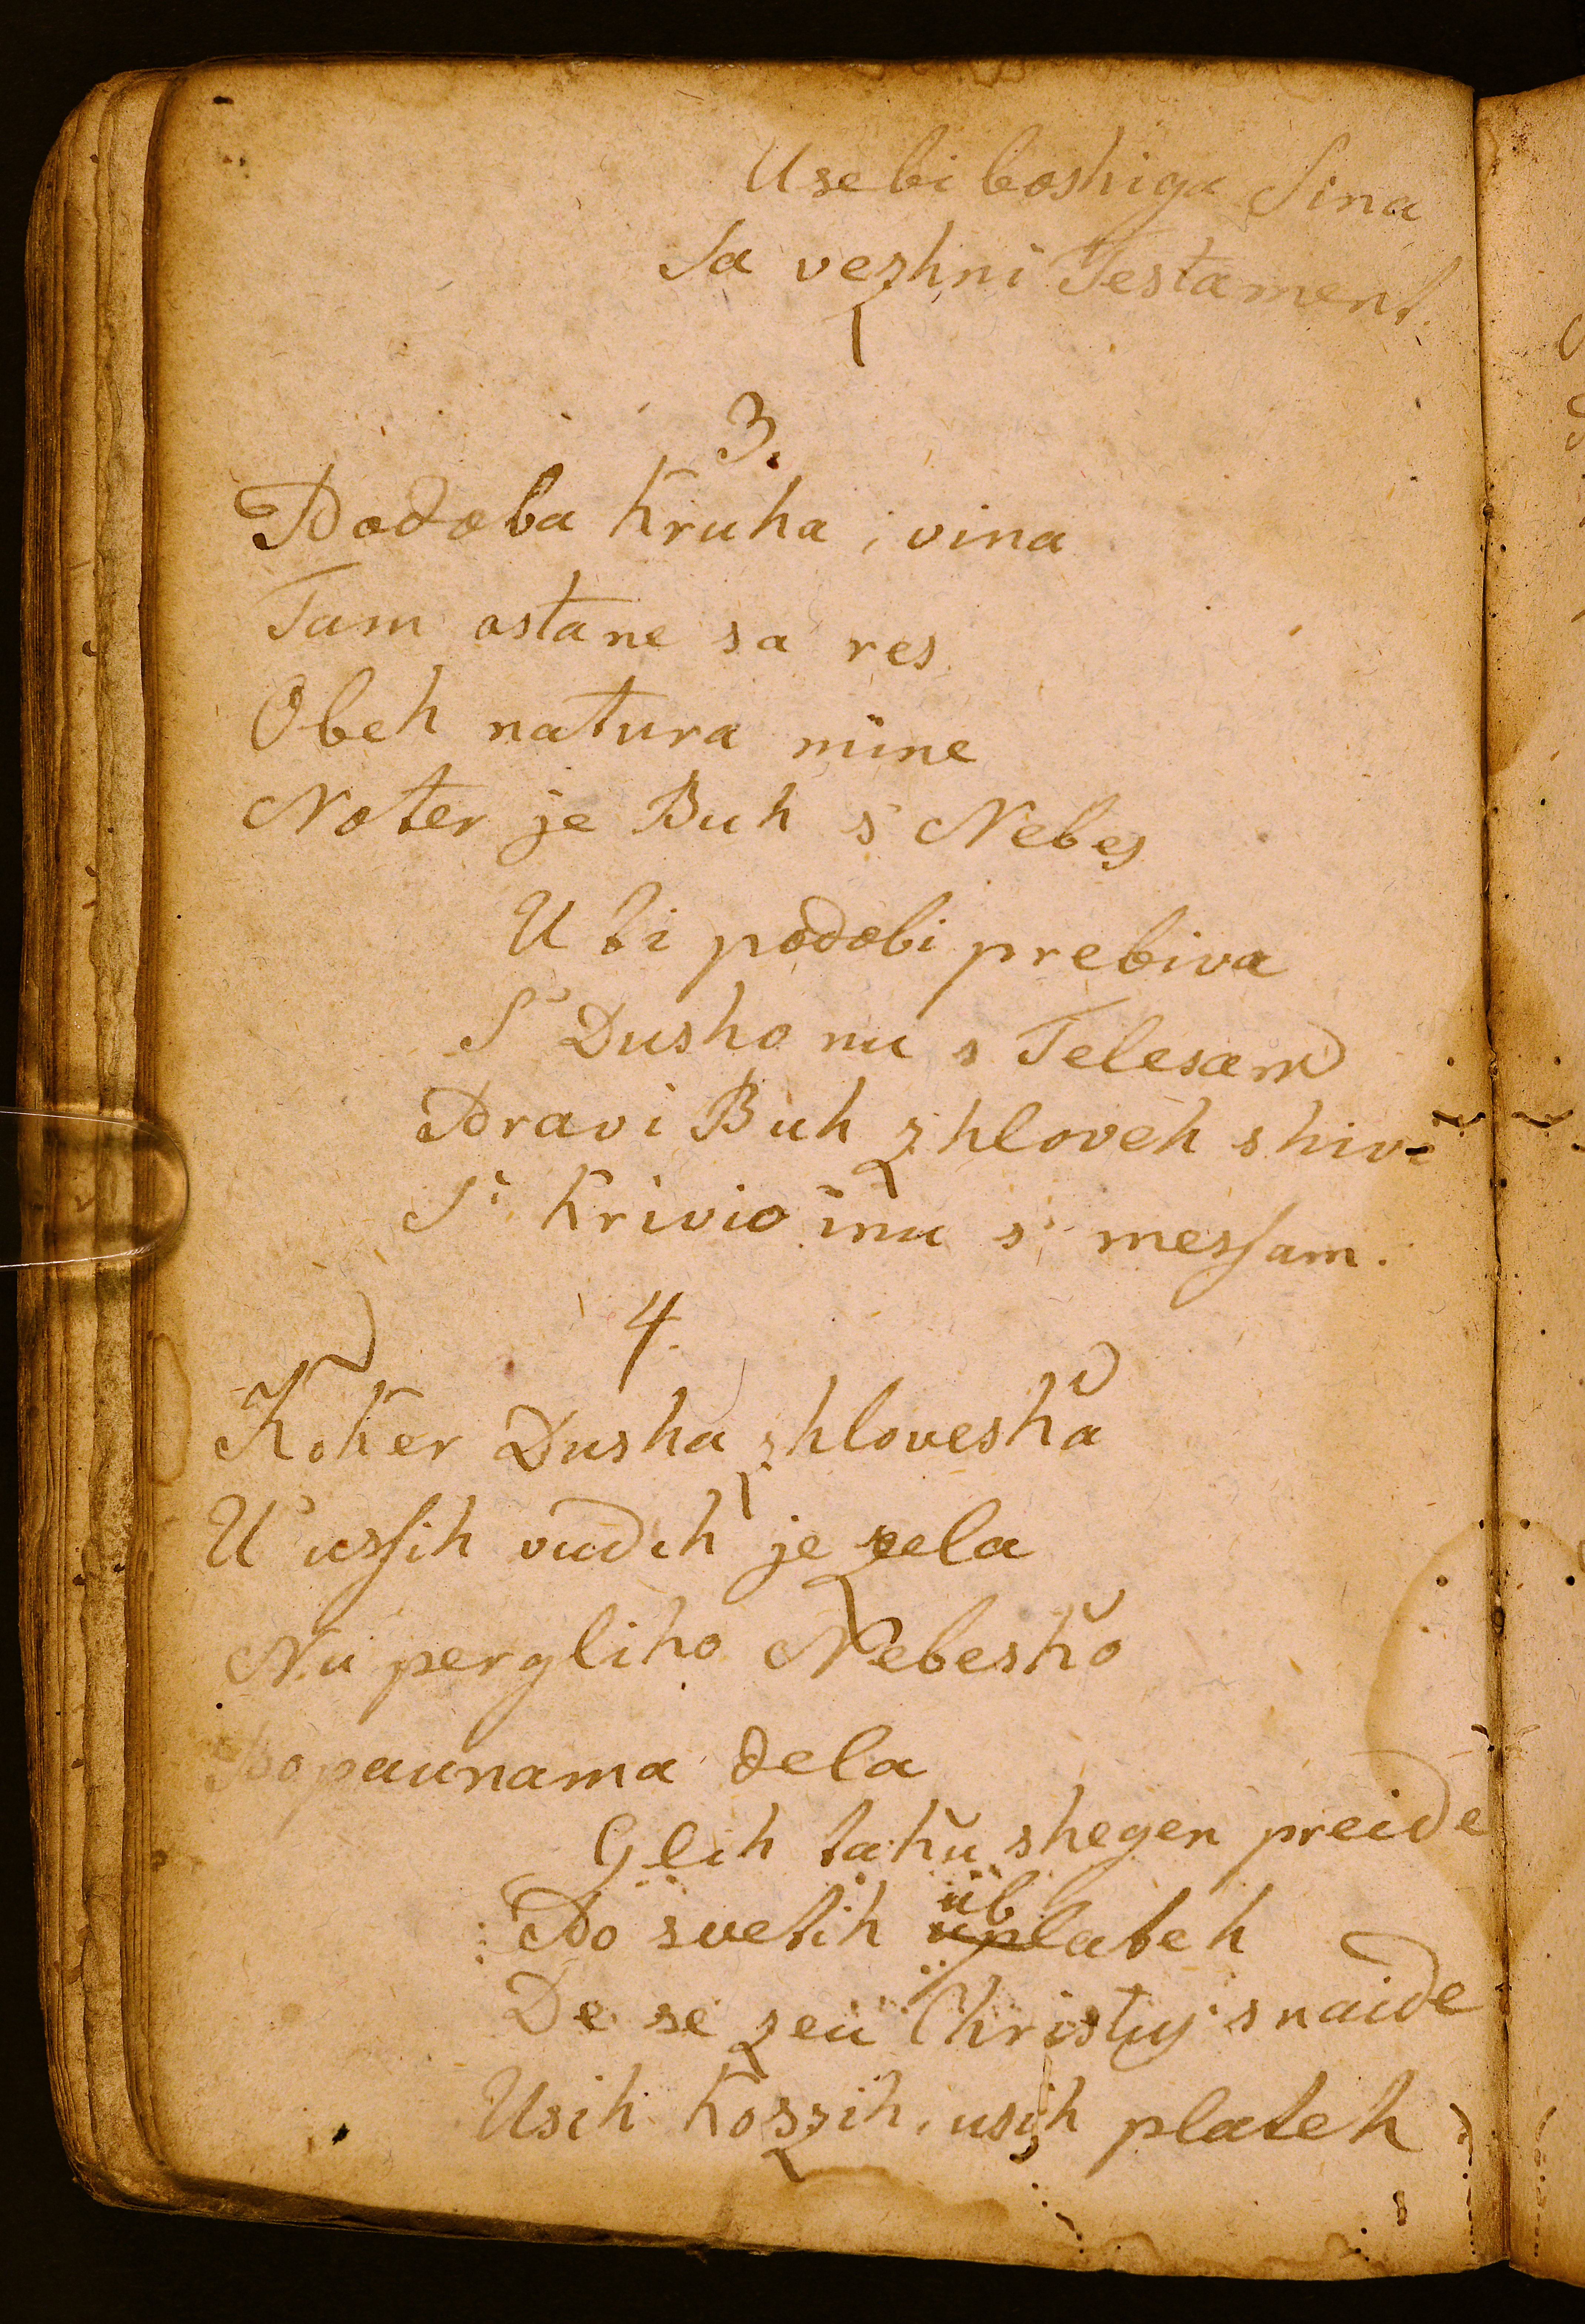 Usebi boshiga Sina
Sa vezhni Testament.
3.
Podoba Kruha i vina
Tam ostane sa res
Obeh natura mine
Noter je Buh s' Nebes
U ti podobi prebiva
S' Dusho nu s Telesam
Pravi Buh zhloveh shivi
S' Krivio inu s' messam.
4.
Koker Dusha zhloveshka
U' ussih vudih je zela
Nu pergliho Nebeshko
Popaunama dela
Glih tahu shegen preide
Po svetih üblateh
De se zeu Christus snaide
Usih Koszih, usih plateh